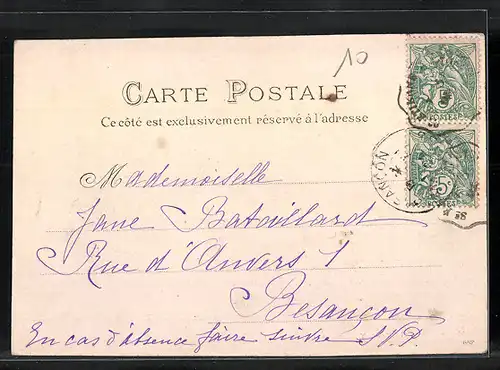 10
CARTE POSTALE
Ce côté est exclusivement réservé à l'adresse
Mademoiselle
Jane Batouillard
Rue d'Anvers 1
Besançon
En cas d'absence faire suivre S.V.P.
5
POSTES
5
POSTES